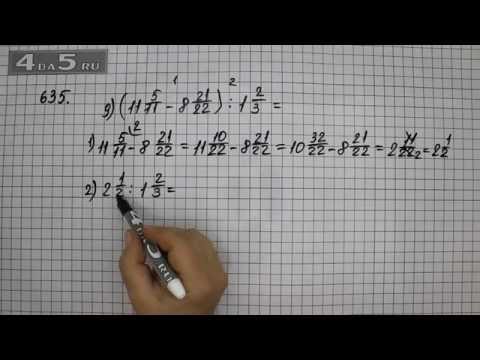 4 ДА 5.RU
1 2
635. 9) (11 5/11 - 8 21/22) : 1 2/3 =
1) 11 5/11 \2 - 8 21/22 = 11 10/22 - 8 21/22 = 10 32/22 - 8 21/22 = 2 11/22 2 = 2 1/2
2) 2 1/2 : 1 2/3 =